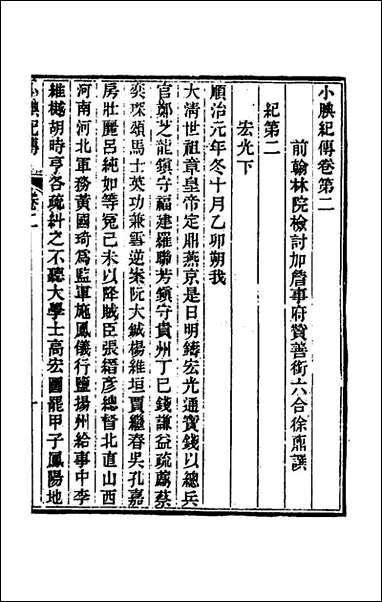 小腆紀傳卷第二
前翰林院檢討加詹事府贊善銜六合徐鼒譔
紀第二
宏光下
順治元年冬十月乙卯朔我
大清世祖章皇帝定鼎燕京是日明鑄宏光通寶錢以總兵
官鄭芝龍鎮守福建羅聯芳鎮守貴州丁巳錢謙益疏薦蔡
奕琛頌馬士英功兼雪逆案阮大鋮楊維垣賈繼春吳孔嘉
房壯麗呂純如等冤己未以降賊臣張縉彥總督北直山西
河南河北軍務黃國琦爲監軍施鳳儀行鹽揚州給事中李
維樾胡時亨各疏糾之不聽大學士高宏圖罷甲子鳳陽地
小腆紀傳
卷二